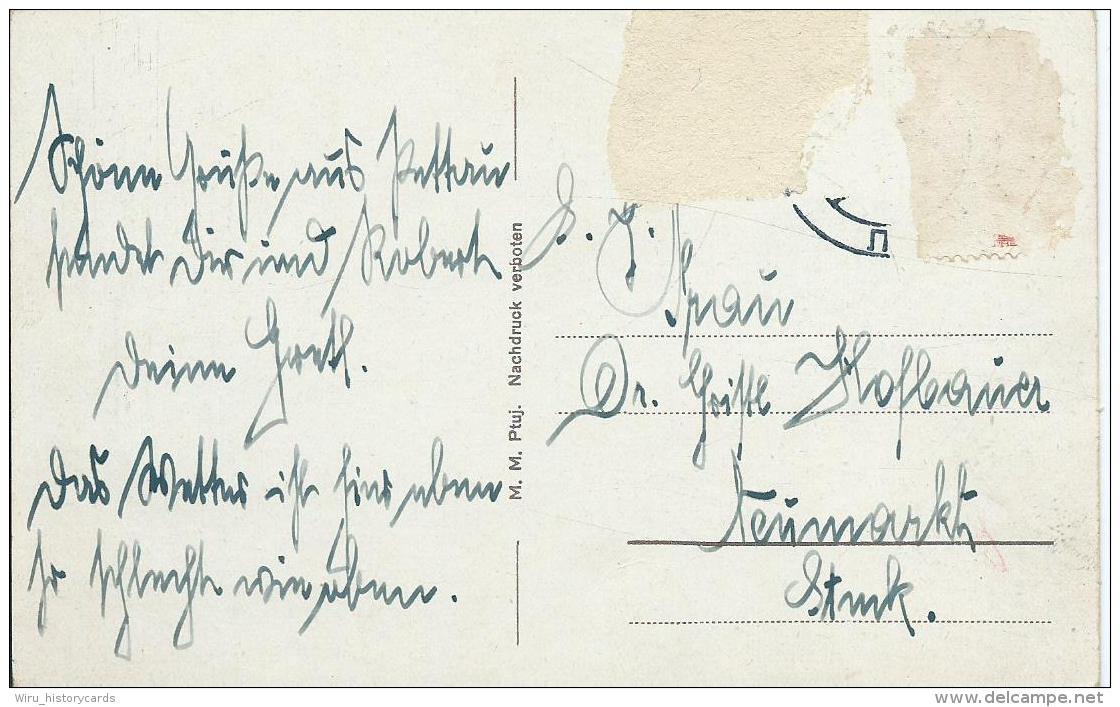 Schöne Grüße aus Pettau
sendet Dir und Robert
Deine Greth.
Das Wetter ist hier eben
so schlecht wie oben.
M. M. Ptuj. Nachdruck verboten
Frau
Dr. Christl Hofbauer
Neumarkt
Stmk.
Wiru_historycards
www.delcampe.net